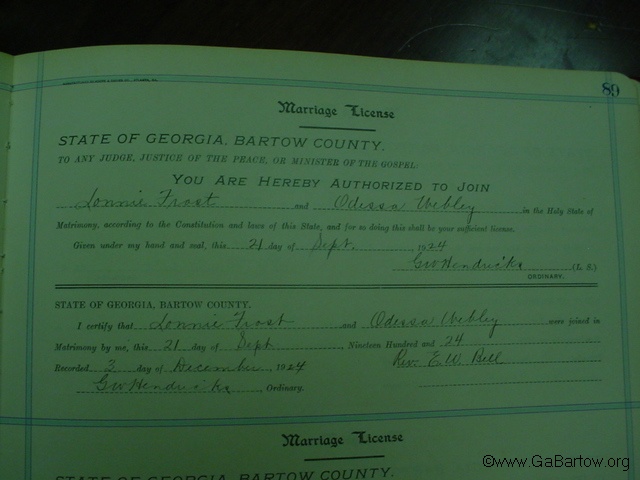 89
Marriage License
STATE OF GEORGIA, BARTOW COUNTY.
TO ANY JUDGE, JUSTICE OF THE PEACE, OR MINISTER OF THE GOSPEL:
YOU ARE HEREBY AUTHORIZED TO JOIN
Lonnie Frost and Odessa Webley in the Holy State of
Matrimony, according to the Constitution and laws of this State, and for so doing this shall be your sufficient license.
Given under my hand and seal, this 21 day of Sept. 1924
GW Hendricks (L. S.)
ORDINARY.
STATE OF GEORGIA, BARTOW COUNTY.
I certify that Lonnie Frost and Odessa Webley were joined in
Matrimony by me, this 21 day of Sept., Nineteen Hundred and 24
Recorded 3 day of December, 1924 Rev. E. W. Bell
GW Hendricks, Ordinary.
Marriage License
STATE OF GEORGIA, BARTOW COUNTY.
©www.GaBartow.org